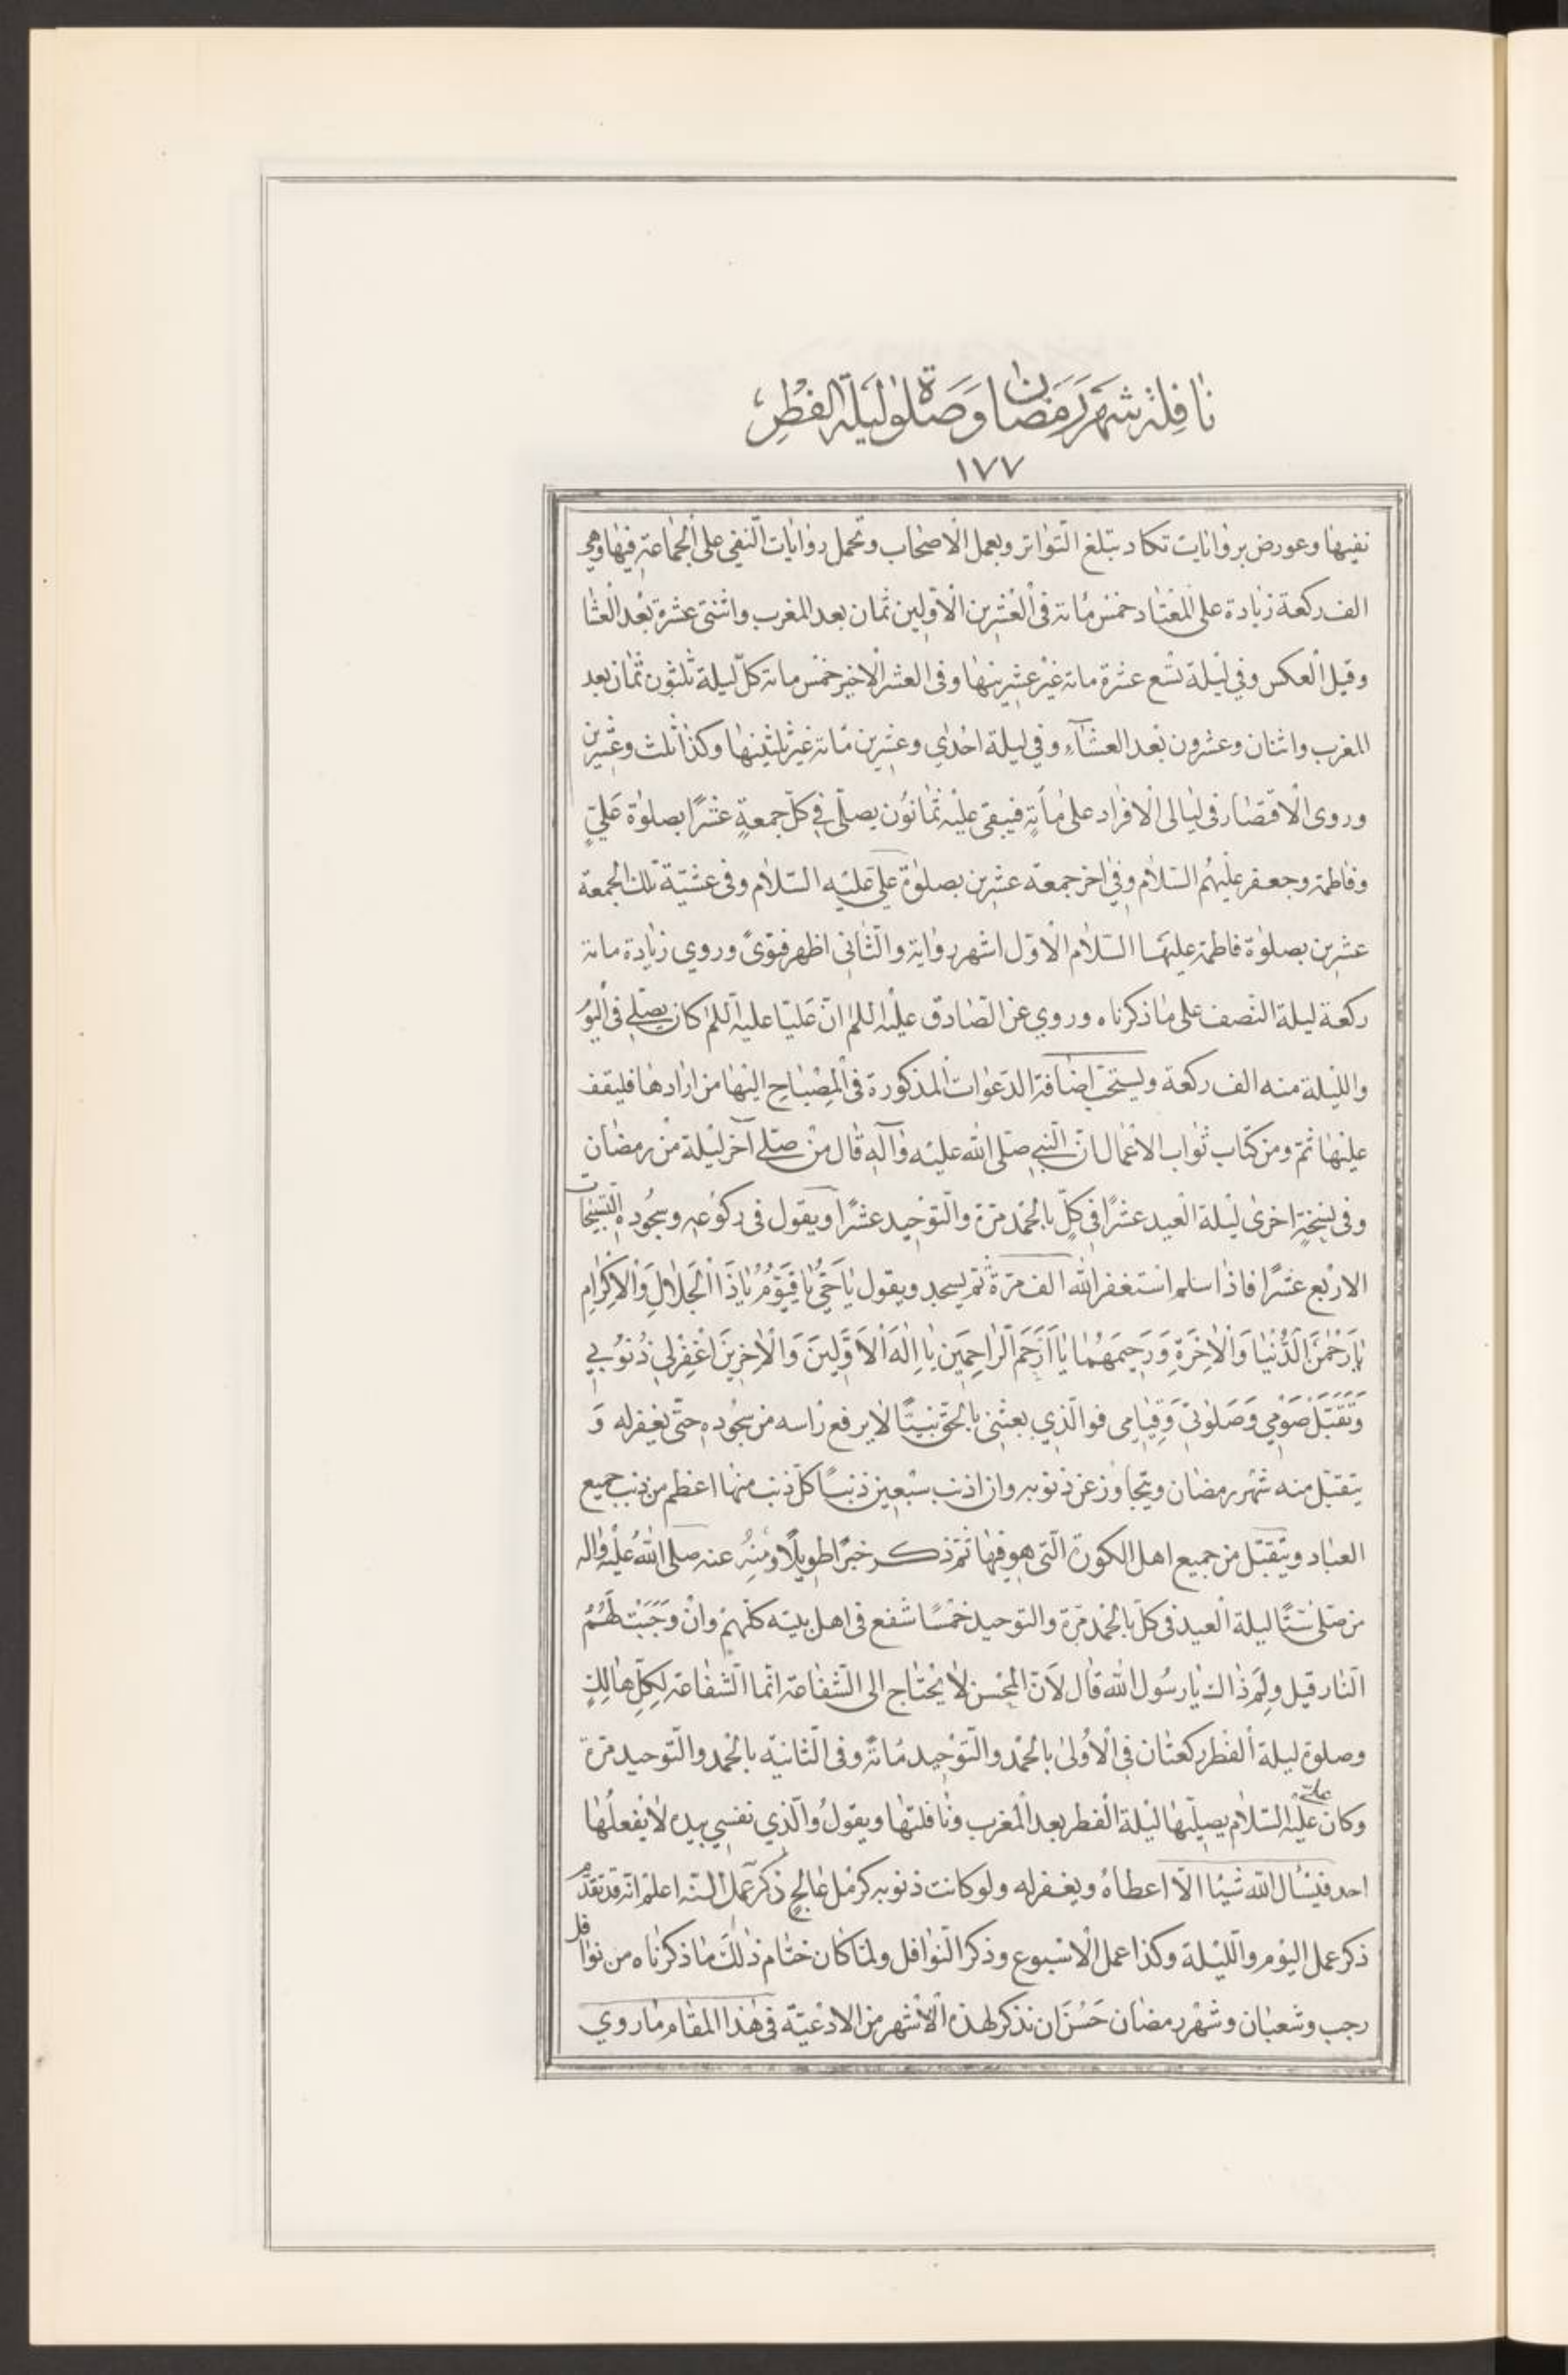 نافلة شهر رمضان وصلوة ليلة الفطر
١٧٧
نفيها وعورض بروايات تكاد تبلغ التواتر وبعمل الاصحاب وتحمل روايات النفي على الجماعة فيها وهي
الف ركعة زيادة على المعتاد خمس مائة في العشرين الاولين ثمان بعد المغرب واثنتى عشرة بعد العشا
وقيل العكس وفي ليلة تسع عشرة مائة غير عشرينها وفى العشر الاخير خمس مائة كلّ ليلة ثلثون ثمان بعد
المغرب واثنان وعشرون بعد العشآء وفي ليلة احدي وعشرين مائة غير ثلثينها وكذا ثلث وعشرين
وروى الاقتصار فى ليالى الافراد على مأية فيبقى عليه ثمانون يصلّى في كلّ جمعةٍ عشرًا بصلوة عليٍّ
وفاطمة وجعفر عليهم السلام وفي اخر جمعة عشرين بصلوة علي عليه السّلام وفى عشيّة تلك الجمعة
عشرين بصلوة فاطمة عليها السّلام الاوّل اشهر رواية والثّانى اظهر فتوىً وروي زيادة مائة
ركعة ليلة النّصف على ما ذكرناه وروي عن الصّادق عليه السلام انّ عليّا عليه السلام كان يصلّي فى اليو
والليلة منه الف ركعة ويستحبّ اضافة الدّعوات المذكورة فى المِصْباح اليها من ارادها فليقف
عليها ثمّ ومن كتاب ثواب الاعمال انّ النّبي صلّى الله عليه وآله قال من صلّى آخر ليلة من رمضان
وفى نسخةٍ اخرى ليلة العيد عشرًا في كلٍّ بالحمد مرّة والتّوحيد عشرًا ويقول فى ركوعه وسجوده التسبيحات
الاربع عشرًا فاذا سلم استغفر الله الف مرّة ثم يسجد ويقول يا حَيُّ يا قَيّوُمُ يا ذَا الْجَلالِ وَالْاِكْرامِ
يا رَحْمٰنَ الدُّنْيا وَالْاٰخِرَةِ وَرَحِيمَهُما يا اَرْحَمَ الرّاحِمينَ يا اِلٰهَ الْاَوَّلينَ وَالْاٰخِرينَ اغْفِرْلي ذُنُوبي
وَتَقَبَّلْ صَوْمي وَصَلوٰتي وَقِيامى فوالّذي بعثنى بالحقّ نبيًّا لا يرفع رأسه من سجوده حتّى يغفر له وَ
يتقبّل منه شهر رمضان ويتجاوز عن ذنوبه وان اذنب سبعين ذنبًا كلّ ذنب منها اعظم من ذنب جميع
العباد ويتقبّل من جميع اهل الكورة الّتى هو فيها ثمّ ذكر خبرًا طويلًا ومنه عنه صلى الله عليه واله
من صلّى ستًّا ليلة العيد فى كلّ بالحمد مرّة والتوحيد خمسًا شفع فى اهل بيته كلّهم وان وَجَبَتْ لَهُمُ
النّار قيل ولِمَ ذاك يا رسول الله قال لانّ المحسن لا يحتاج الى الشّفاعة انّما الشّفاعة لكلّ هالِكٍ
وصلوة ليلة الفطر ركعتان في الاولى بالحمد والتّوحيد مائة وفى الثّانية بالحمد والتّوحيد مرّة
وكان عليّ عليه السّلام يصلّيها ليلة الفطر بعد المغرب ونافلتها ويقول والّذي نفسي بيده لا يفعلها
احد فيسأل الله شيئا الّا اعطاه ويغفر له ولو كانت ذنوبه كرمل عالجٍ ذكر عمل السّنة اعلم انّه قد تقدّم
ذكر عمل اليوم والليلة وكذا عمل الاسبوع وذكر النّوافل ولمّا كان ختام ذلك ما ذكرناه من نوافل
رجب وشعبان وشهر رمضان حَسُنَ ان نذكر لهذه الاشهر من الادعيّة في هذا المقام ما روي